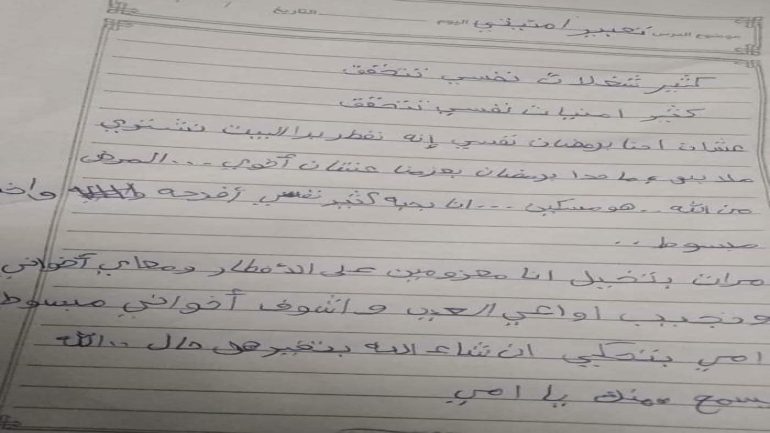 التاريخ
موضوع الدرس تعبير امنيتي اليوم
كثير شغلات نفسي تتحقق
كثير امنيات نفسي تتحقق
عشان احنا برمضان نفسي إنه نفطر برا البيت نشتري
ملابس وما حدا برمضان بعزمنا عشان أخوي ... المرض
من الله .. هو مسكين ... انا بحبه كثير نفسي أفرحه
مبسوط ..
مرات بتخيل انا معزومين على الافطار ومعاي أخواني
ونجيب اواعي العيد واشوف أخواني مبسوط
امي بتحكي ان شاء الله بتغير هل حال .. الله
يسمع منك يا امي